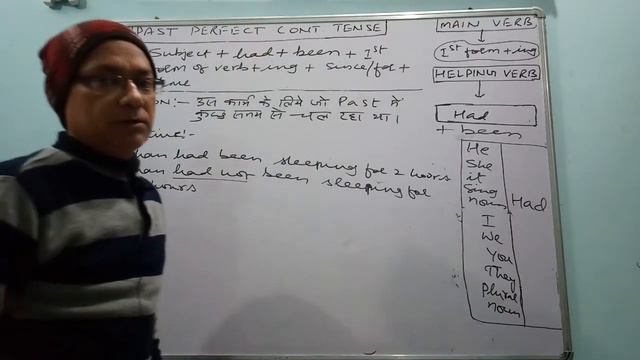 PAST PERFECT CONT TENSE
Subject + had + been + 1st
form of verb + ing + since/for +
time
ON:- उस कार्य के लिये जो Past मे
कुछ समय से चल रहा था।
had been sleeping for 2 hours
had not been sleeping for
hours
MAIN VERB
1st form + ing
HELPING VERB
Had
+ been
He
She
it
Sing
noun
Had
I
We
You
They
Plural
noun